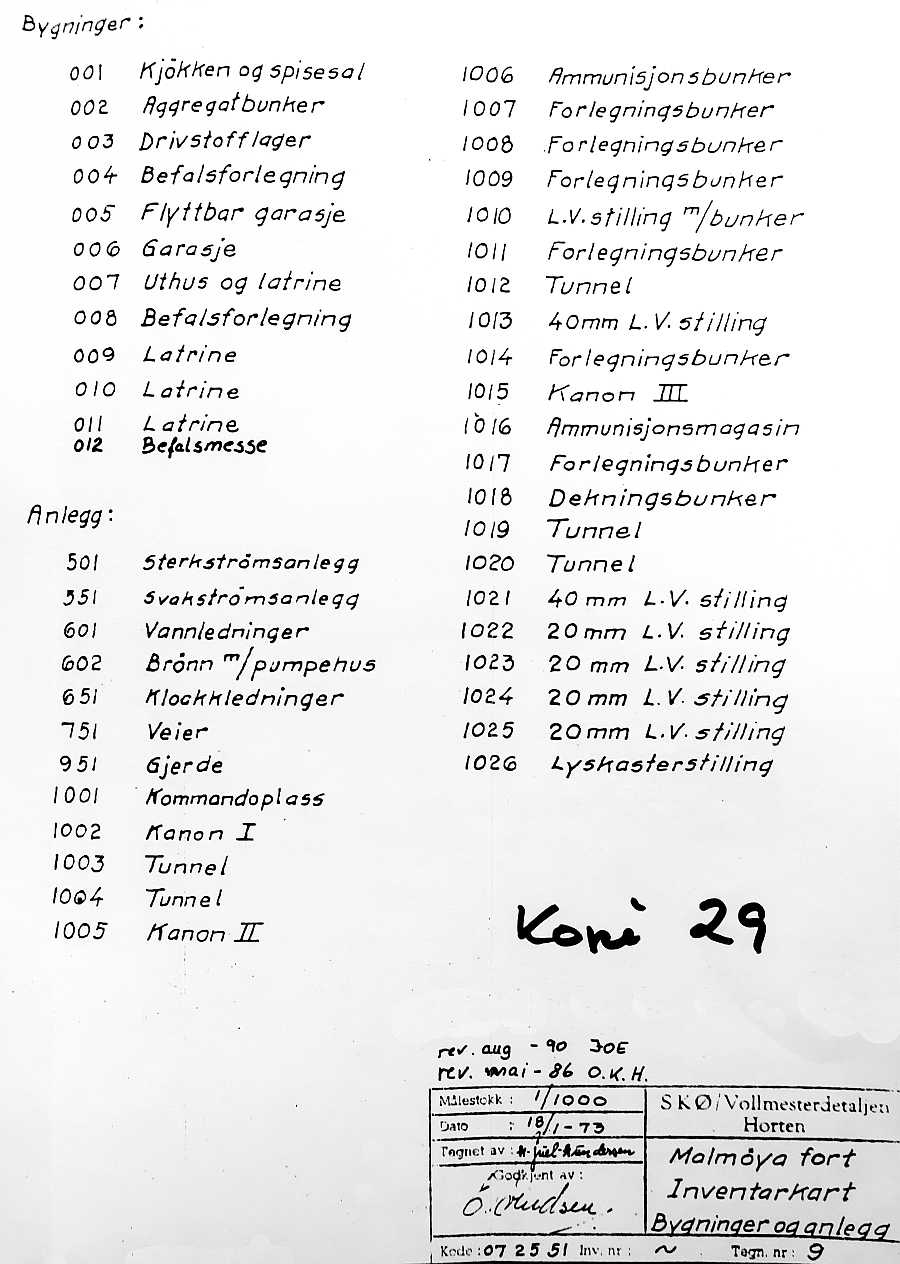 Bygninger:
001 Kjökken og spisesal
002 Aggregatbunker
003 Drivstofflager
004 Befalsforlegning
005 Flyttbar garasje
006 Garasje
007 Uthus og latrine
008 Befalsforlegning
009 Latrine
010 Latrine
011 Latrine
012 Befalsmesse
Anlegg:
501 Sterkströmsanlegg
551 Svakströmsanlegg
601 Vannledninger
602 Brönn m/pumpehus
651 Klockkledninger
751 Veier
951 Gjerde
1001 Kommandoplass
1002 Kanon I
1003 Tunnel
1004 Tunnel
1005 Kanon II
1006 Ammunisjonsbunker
1007 Forlegningsbunker
1008 Forlegningsbunker
1009 Forlegningsbunker
1010 L.V. stilling m/bunker
1011 Forlegningsbunker
1012 Tunnel
1013 40mm L.V. stilling
1014 Forlegningsbunker
1015 Kanon III
1016 Ammunisjonsmagasin
1017 Forlegningsbunker
1018 Dekningsbunker
1019 Tunnel
1020 Tunnel
1021 40 mm L.V. stilling
1022 20 mm L.V. stilling
1023 20 mm L.V. stilling
1024 20 mm L.V. stilling
1025 20 mm L.V. stilling
1026 Lyskasterstilling
Kopi 29
rev. aug - 90 JOE
rev. mai - 86 O.K.H.
Målestokk: 1/1000
Dato : 18/1-73
Tegnet av:
Godkjent av:
SKØ/Vollmesterdetaljen
Horten
Malmöya fort
Inventarkart
Bygninger og anlegg
Kode: 07 25 51 Inv. nr: ~ Tegn. nr: 9